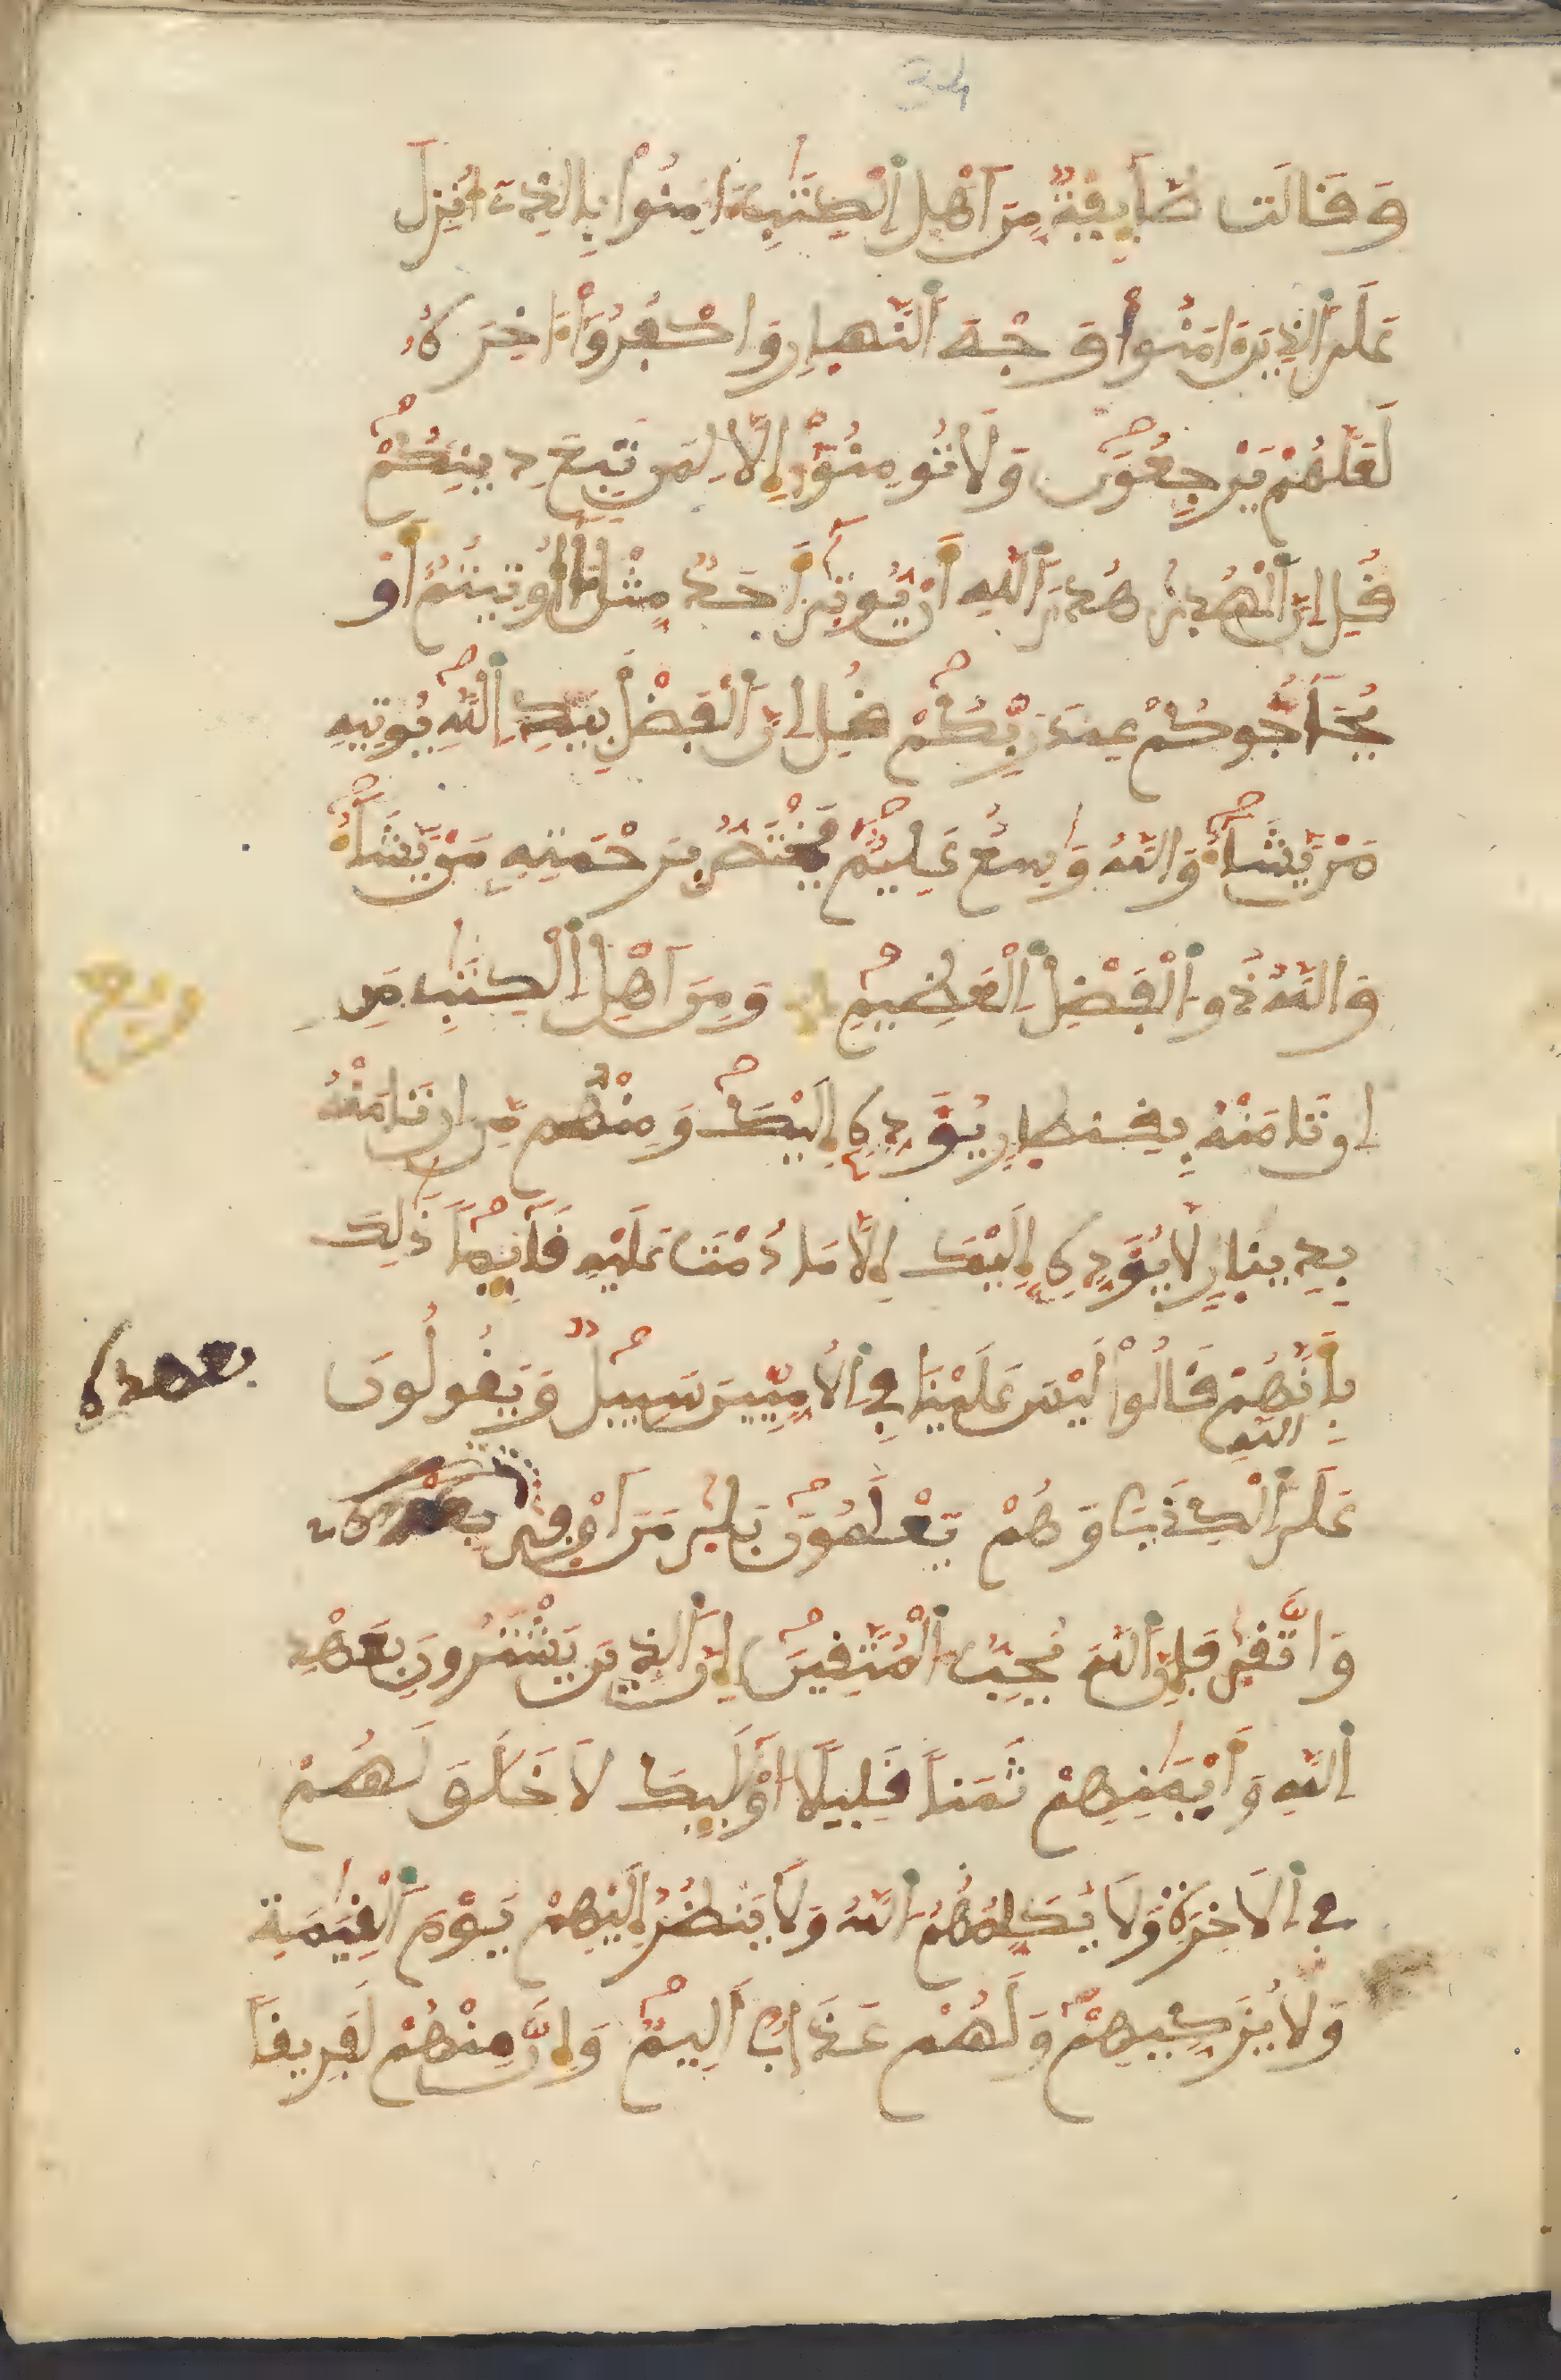 34
وَقَالَت طَّآئِفَةٌ مِّنَ اَهْلِ اِ۬لْكِتَٰبِ ءَامِنُوا۟ بِالذِےٓ أُنزِلَ
عَلَي اَ۬لذِينَ ءَامَنُوا۟ وَجْهَ اَ۬لنَّهارِ وَاكْفُرُوٓا۟ ءَاخِرَهُۥ
لَعَلَّهُمْ يَرْجِعُونَ وَلَا تُومِنُوٓا۟ إِلَّا لِمَن تَبِعَ دِينَكُمْ
قُلِ اِنَّ اَ۬لْهُدَىٰ هُدَى اَ۬للَّهِ أَنْ يُّوتَىٰٓ أَحَدٌ مِّثْلَ مَآ أُوتِيتُمُۥٓ أَوْ
يُحَآجُّوكُمْ عِندَ رَبِّكُمْ قُلِ اِنَّ اَ۬لْفَضْلَ بِيَدِ اِ۬للَّهِ يُوتِيهِ
مَنْ يَّشَآءُ وَاللَّهُ وَٰسِعٌ عَلِيمٌ يَخْتَصُّ بِرَحْمَتِهِ مَنْ يَّشَآءُ
وَاللَّهُ ذُو اُ۬لْفَضْلِ اِ۬لْعَظِيمِ وَمِنَ اَهْلِ اِ۬لْكِتَٰبِ مَنِ
اِن تَامَنْهُ بِقِنطارٍ يُؤَدِّهِ إِلَيْكَ وَمِنْهُم مَّنِ اِن تَامَنْهُ
بِدِينارٍ لَّا يُؤَدِّهِ إِلَيْكَ إِلَّا مَا دُمْتَ عَلَيْهِ قَآئِماً ذَٰلِكَ
بِأَنَّهُمْ قَالُوا۟ لَيْسَ عَلَيْنَا فِے اِ۬لُامِّيِّينَ سَبِيلٌ وَيَقُولُونَ
عَلَي اَللَّهِ اِ۬لْكَذِبَ وَهُمْ يَعْلَمُونَ بَلَىٰ مَنَ اَوْفَىٰ بِعَهْدِهِۦ
بعهده
وَاتَّقَىٰ فَإِنَّ اَ۬للَّهَ يُحِبُّ اُ۬لْمُتَّقِينَ إِنَّ اَ۬لذِينَ يَشْتَرُونَ بِعَهْدِ
اِ۬للَّهِ وَأَيْمَٰنِهِمْ ثَمَناً قَلِيلًا اُوْلَٰٓئِكَ لَا خَلَٰقَ لَهُمْ
فِے اِ۬لَاخِرَةِ وَلَا يُكَلِّمُهُمُ اُ۬للَّهُ وَلَا يَنظُرُ إِلَيْهِمْ يَوْمَ اَ۬لْقِيَٰمَةِ
وَلَا يُزَكِّيهِمْ وَلَهُمْ عَذَابٌ اَلِيمٌ وَإِنَّ مِنْهُمْ لَفَرِيقاً